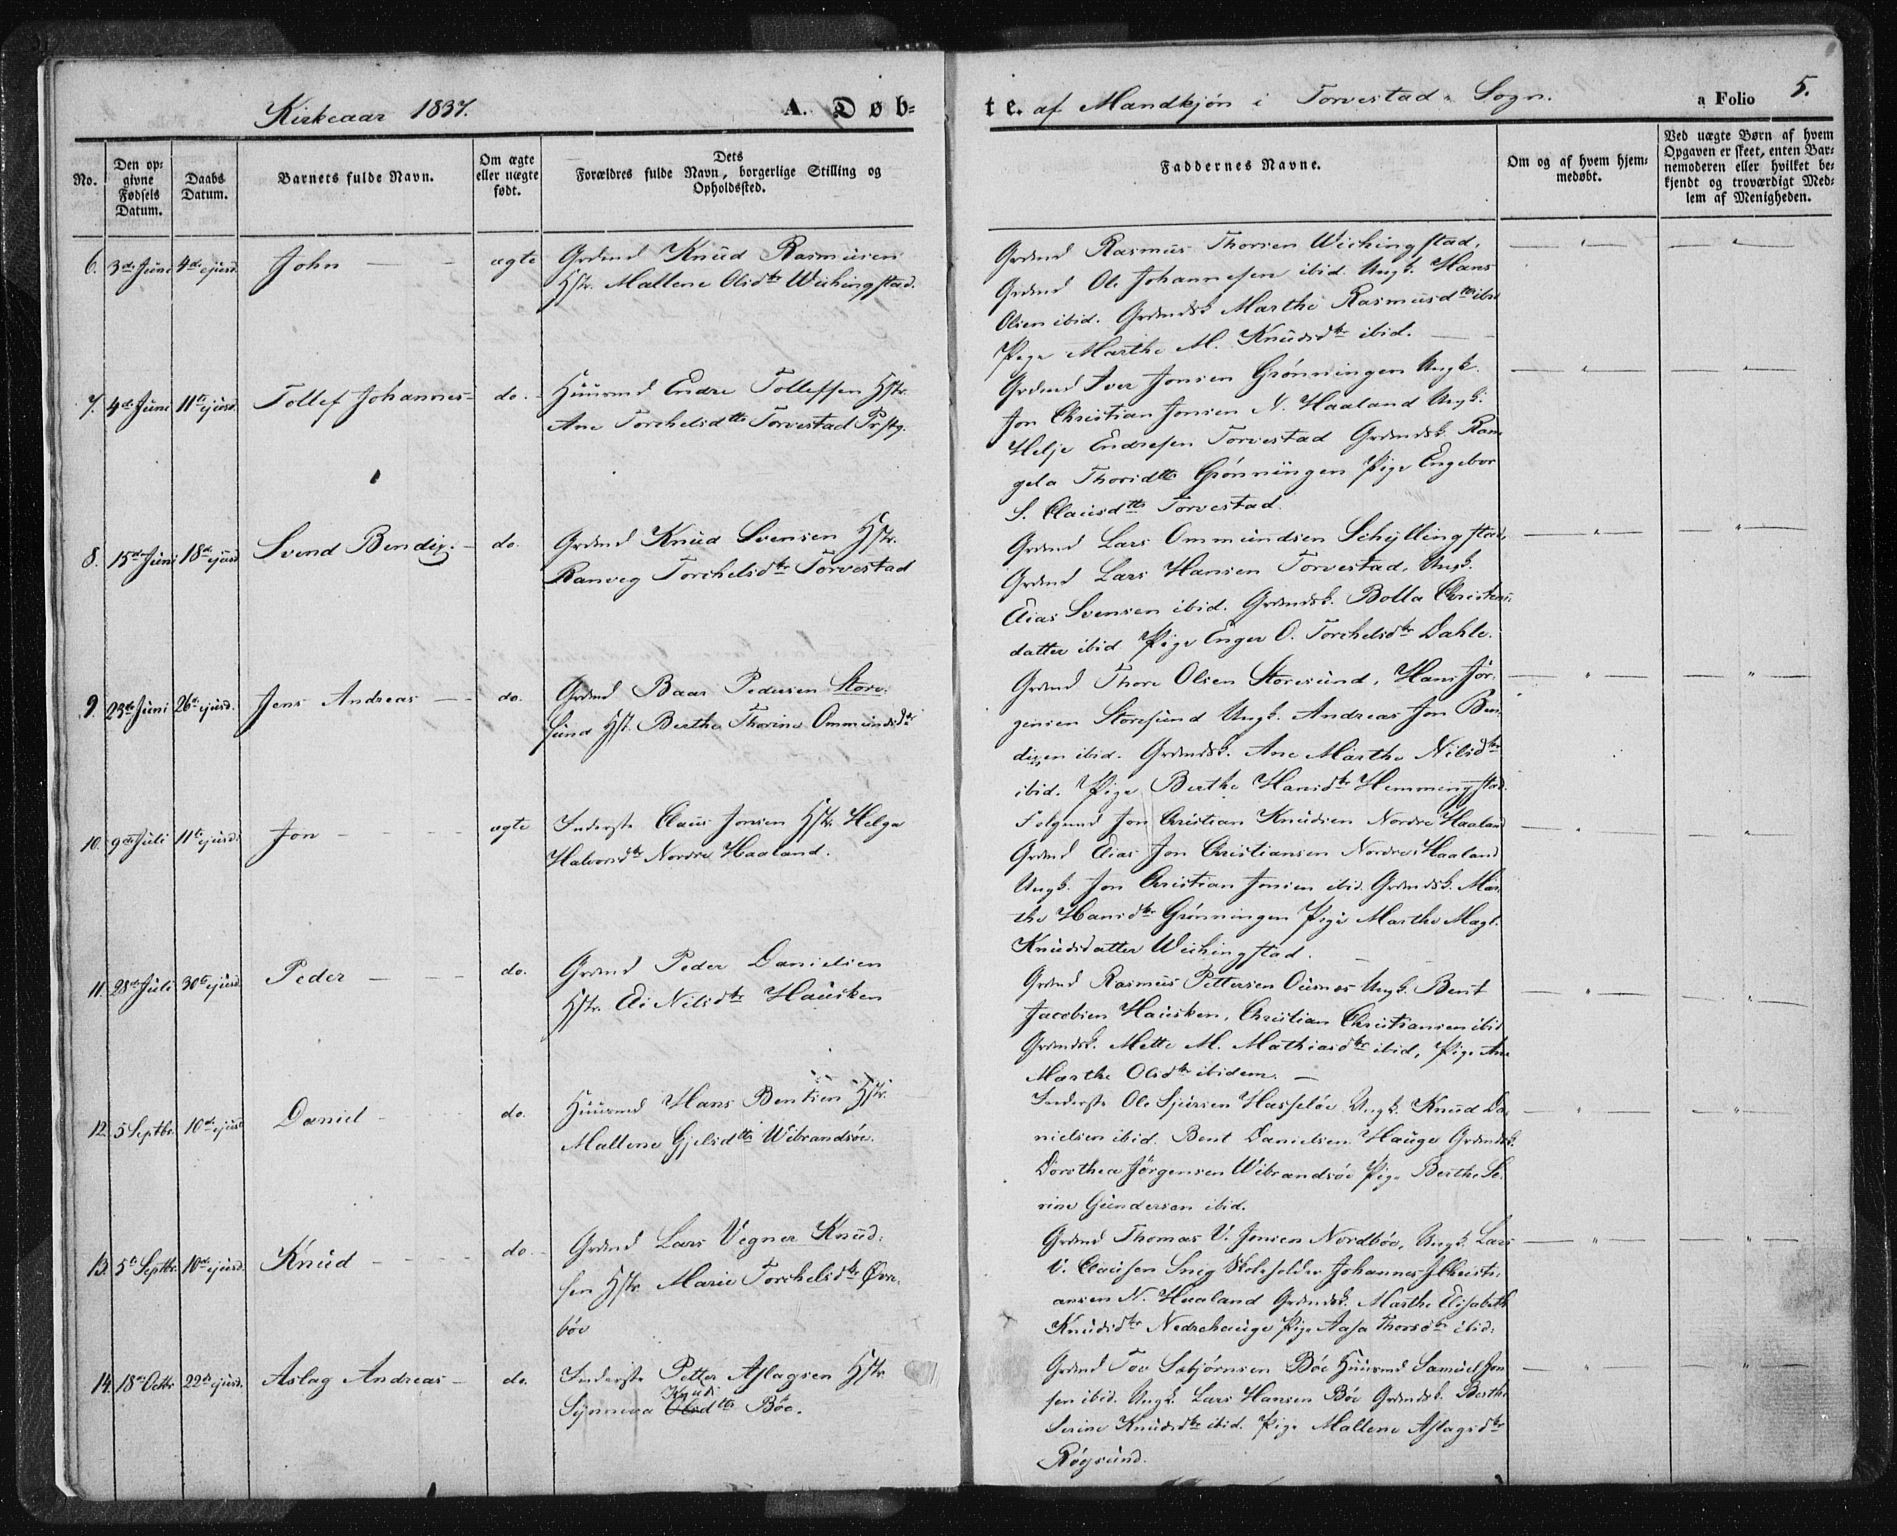 Kirkeaar 1837.
A. Døb-
te. af Mandkjøn i Torvestad Sogn.
a Folio 5.
No.
Den op-
givne
Fødsels
Datum.
Daabs
Datum.
Barnets fulde Navn.
Om ægte
eller uægte
født.
Dets
Forældres fulde Navn, borgerlige Stilling og
Opholdssted.
Faddernes Navne.
Om og af hvem hjem-
medøbt.
Ved uægte Børn af hvem
Opgaven er skeet, enten Bar-
nemoderen eller hvilket be-
kjendt og troværdigt Med-
lem af Menigheden.
6. 3de Juni 4de ejusd. John ægte
Grdmd Knud Rasmusen
Hstr. Mallene Olsdtr Wichingstad.
Grdmd Rasmus Thorsen Wichingstad,
Grdmd Ole Johannesen ibid. Ungk. Hans
Olsen ibid. Grdmdsk. Marthe Rasmusdtr ibid
Pige Marthe M. Knudsdtr ibid.
7. 4de Juni 11te ejusd. Tollef Johannes do.
Huusmd Endre Tollefsen Hstr.
Ane Torchelsdtr Torvestad Prstg.
Grdmd Iver Jonsen Grønningen Ungk.
Jon Christian Jonsen N. Haaland Ungk.
Helje Endresen Torvestad Grdmdsk. Ran
gela Thorsdtr Grønningen Pige Engebor
S. Clausdtr Torvestad.
8. 15de Juni 18de ejusd Svend Bendix do.
Grdmd Knud Svensen Hstr.
Ranveg Torchelsdtr Torvestad
Grdmd Lars Ommundsen Schyllingstad,
Grdmd Lars Hansen Torvestad, Ungk.
Elias Svensen ibid. Grdmdsk. Bolla Christens
datter ibid Pige Enger O. Torchelsdtr Dahle.
9. 23de Juni 26te ejusd. Jens Andreas do.
Grdmd Baar Pedersen Store-
sund Hst. Berthe Thorine Ommundsdtr
Grdmd Thore Olsen Storesund, Hans Jør
gensen Storesund Ungk. Andreas Jon Ben
dixen ibid. Grdmdsk. Ane Marthe Nilsdtr
ibid. Pige Berthe Hansdtr Hemmingstad.
10. 9de Juli 11te ejusd. Jon ægte
Inderste Claus Jonsen Hstr. Helga
Halvorsdtr Nordre Haaland.
Folgemd Jon Christian Knudsen Nordre Haaland
Grdmd Elias Jon Christiansen Nordre Haaland
Ungk. Jon Christian Jonsen ibid. Grdmdsk. Mar
the Hansdtr Grønningen Pige Marthe Magt.
Knudsdatter Wichingstad.
11. 28de Juli 30te ejusd. Peder do.
Grdmd Peder Danielsen
Hstr. Eli Nilsdtr Hausken
Grdmd Rasmus Pettersen Ousnes Ungk. Bent
Jacobsen Hausken, Christian Christiansen ibid
Grdmdsk. Mette M. Mathiasdtr ibid, Pige Ane
Marthe Olsdtr ibidem.
12. 5 Septbr. 10de ejusd Daniel do.
Huusmd Hans Bentsen Hstr.
Mallene Gjelsdtr Wibrandsøe.
Inderste Ole Sjursen Hasseløe Ungk. Knud Da
nielsen ibid. Bent Danielsen Hauge Grdmdsk.
Dorothea Jørgensen Wibrandsøe Pige Berthe Se
rine Gundersen ibid.
13. 5te Septbr. 10de ejusd. Knud do.
Grdmd Lars Vegner Knud-
sen Hstr. Marie Torchelsdtr Øvre-
bøe
Grdmd Thomas V. Jonsen Nordbøe, Ungk. Lars
V. Clausen Snig Skoleholder Johannes J Christi
ansen N. Haaland Grdmdsk. Marthe Elisabeth
Knudsdtr Nedrehauge Pige Aasa Thorsdtr ibid.
14. 18de Octbr 22de ejusd. Aslag Andreas do.
Inderste Petter Aslagsen Hstr
Synneva Knuds Olsdtr Bøe.
Grdmd Tov Sebjørnsen Bøe Huusmd Samuel Jon
sen ibid. Ungk. Lars Hansen Bøe Grdmdsk. Berthe
Serine Knudsdtr ibid. Pige Mallene Aslagsdtr
Røgsund.